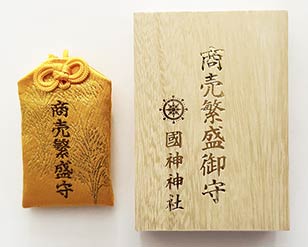 商売繁盛守
商売繁盛御守
國神神社